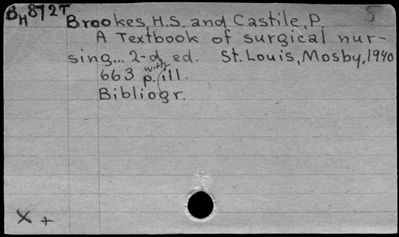 BH872T Brookes, H.S. and Castile, P. 5
A Textbook of surgical nur-
sing... 2-d ed. St. Louis, Mosby, 1940
663 p. with ill.
Bibliogr.
X +